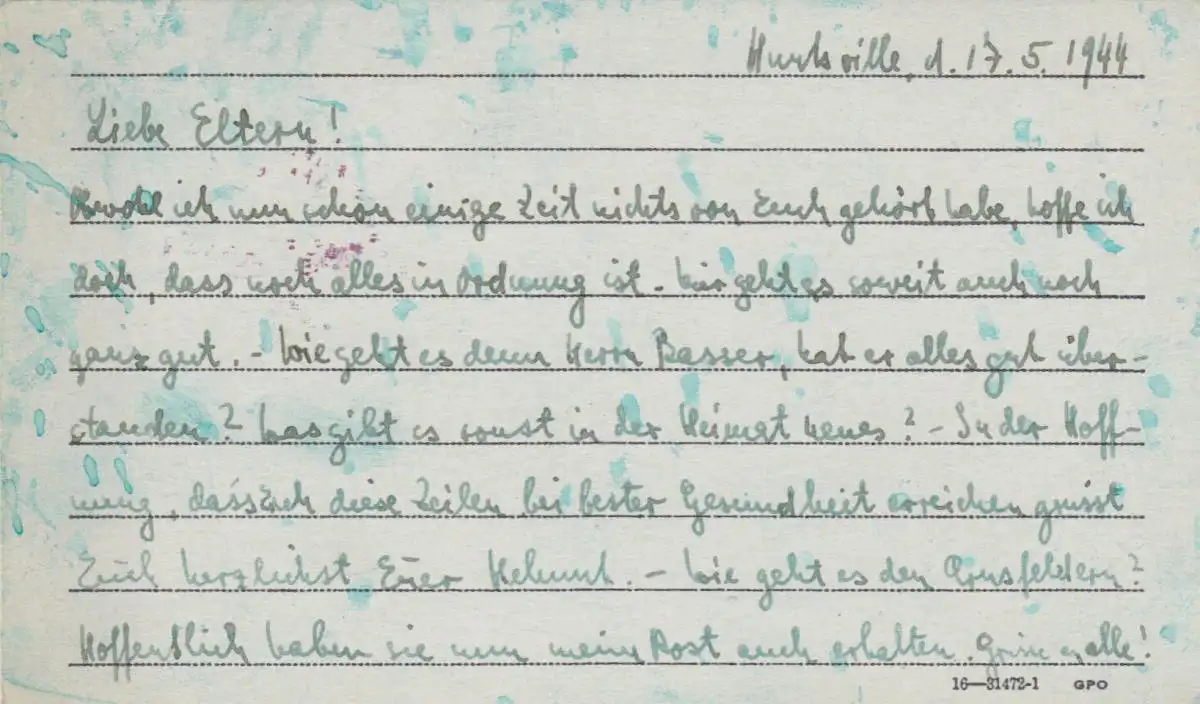 Huntsville, d. 17. 5. 1944
Liebe Eltern!
Obwohl ich nun schon einige Zeit nichts von Euch gehört habe, hoffe ich
doch, dass noch alles in Ordnung ist. Mir geht es soweit auch noch
ganz gut. - Wie geht es denn Herrn Basser, hat er alles gut über-
standen? Was gibt es sonst in der Heimat neues? - In der Hoff-
nung, dass Euch diese Zeilen bei bester Gesundheit erreichen grüsst
Euch herzlichst Euer Helmut. - Wie geht es den Arnsfeldern?
Hoffentlich haben sie nun meine Post auch erhalten. alle!
16—31472-1 GPO